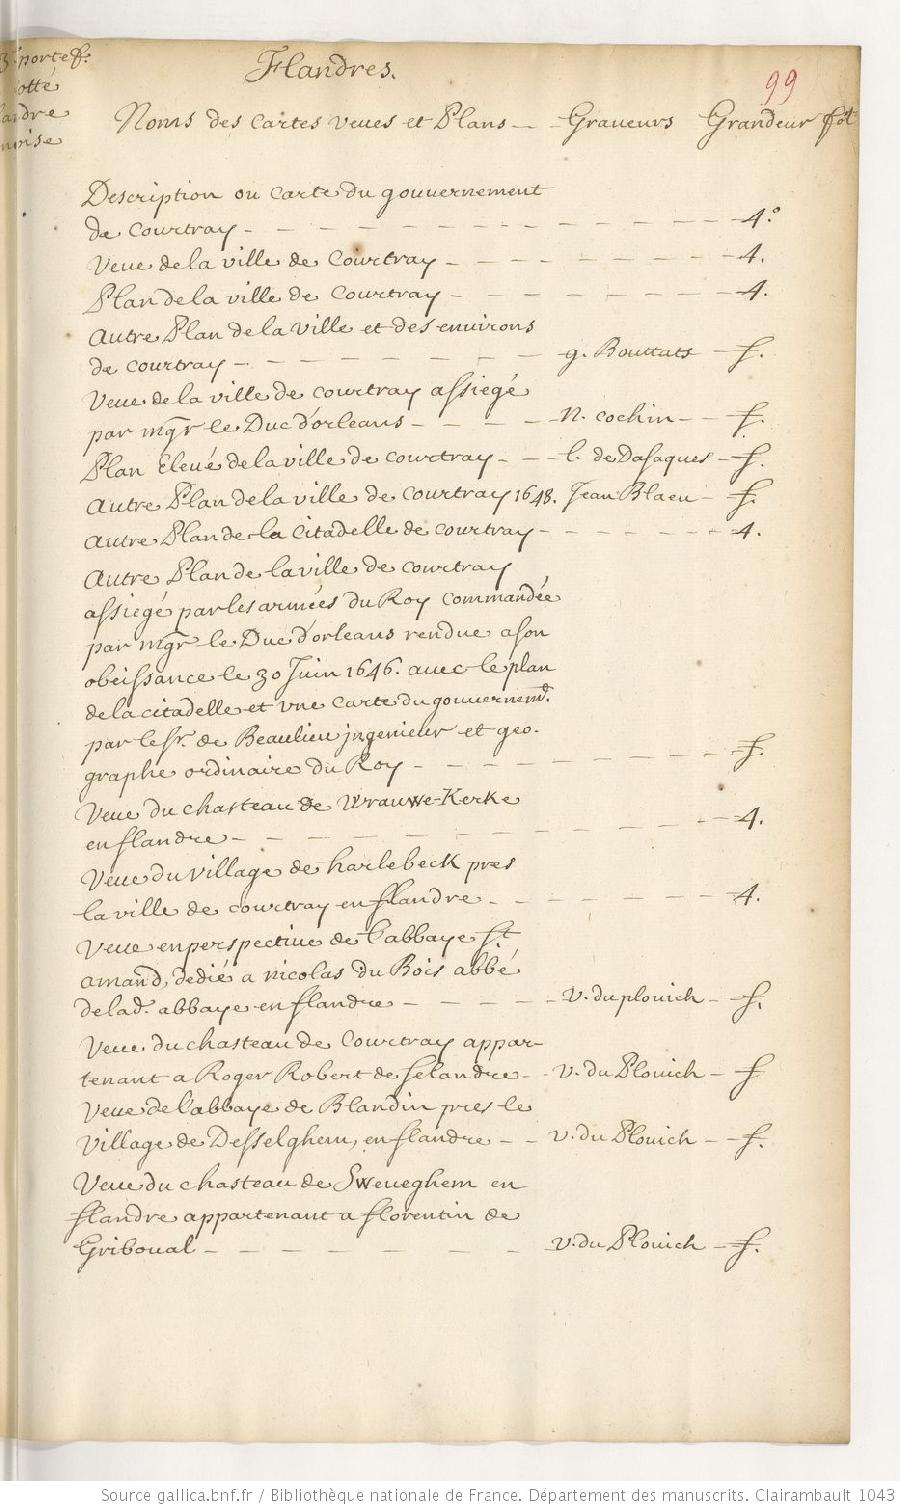 3.e portef.
Flandres.
cotté
99
Noms des cartes veues et Plans -- Graveurs Grandeur fol
Description ou carte du gouvernement
de courtray - - - - - - - - - - - - - 4.°
Veue de la ville de Courtray - - - - - - - - 4.
Plan de la ville de Courtray - - - - - - - - 4.
Autre Plan de la Ville et des environs
de courtray - - - - - - - - g. Bouttats - f.
Veue de la ville de courtray assiegé
par mgr le Duc d'orleans - - - - n. cochin - - f.
Plan Elevé de la ville de courtray - - l. de Dasaques - f.
Autre Plan de la ville de courtray 1648. Jean Blaeu - f.
Autre Plan de la Citadelle de courtray - - - - - - 4.
Autre Plan de la ville de courtray
assiegé par les armées du Roy commandée
par mgr le Duc d'orleans rendue a son
obeissance le 30 Juin 1646. avec le plan
de la citadelle et vne carte du gouvernem.t
par le Sr. de Beaulieu jngenieur et geo-
graphe ordinaire du Roy - - - - - - - - f.
Veue du chasteau de Vrauwe-Kerke
en flandre - - - - - - - - - - - 4.
Veue du village de harlebeck pres
la ville de courtray en flandre - - - - - - 4.
Veue en perspective de l'abbaye St
amand, dedié a nicolas du Bois abbé
de lad. abbaye en flandre - - - - v. du plouich - f.
Veue du chasteau de Courtray appar-
tenant a Roger Robert de selandre - - v. du Plouich - f
Veue de l'abbaye de Blandin pres le
village de Desselghem, en flandre - - v. du Plouich - f.
Veue du chasteau de Sweveghem en
flandre appartenant a florentin de
Griboual - - - - - - - - v. du Plouich - f.
Source gallica.bnf.fr / Bibliothèque nationale de France. Département des manuscrits. Clairambault 1043